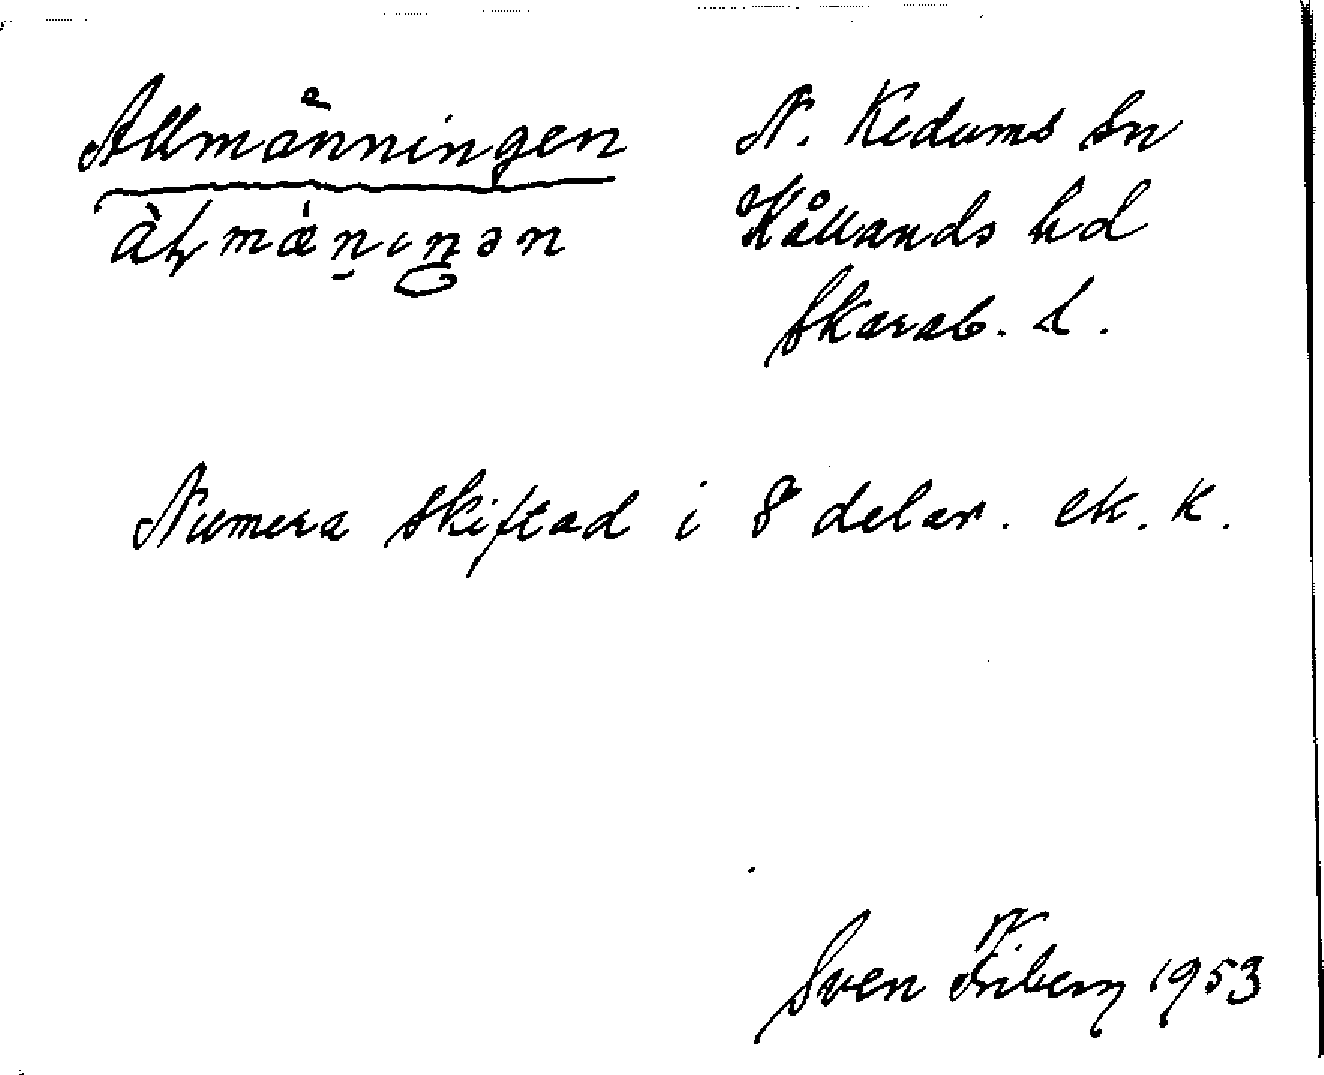 Allmänningen
N. Kedums sn
àḷmǽn̠ıŋən
Kållands hd
Skarab. l.
Numera skiftad i 8 delar. ek. k.
Sven Friberg 1953